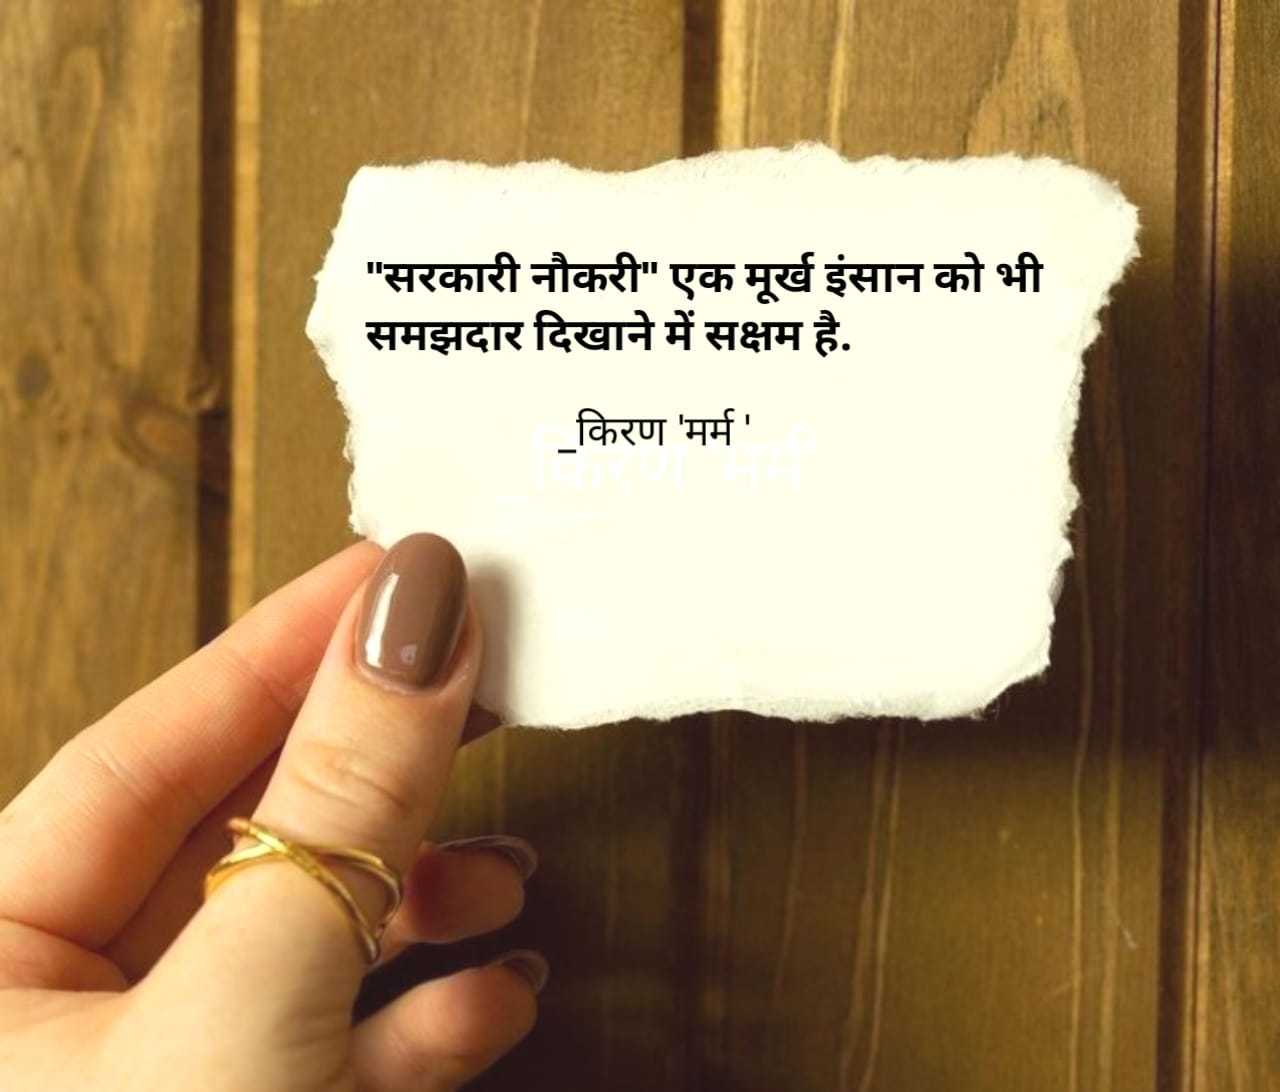 "सरकारी नौकरी" एक मूर्ख इंसान को भी
समझदार दिखाने में सक्षम है.
_किरण 'मर्म '
_किरण 'मर्म'